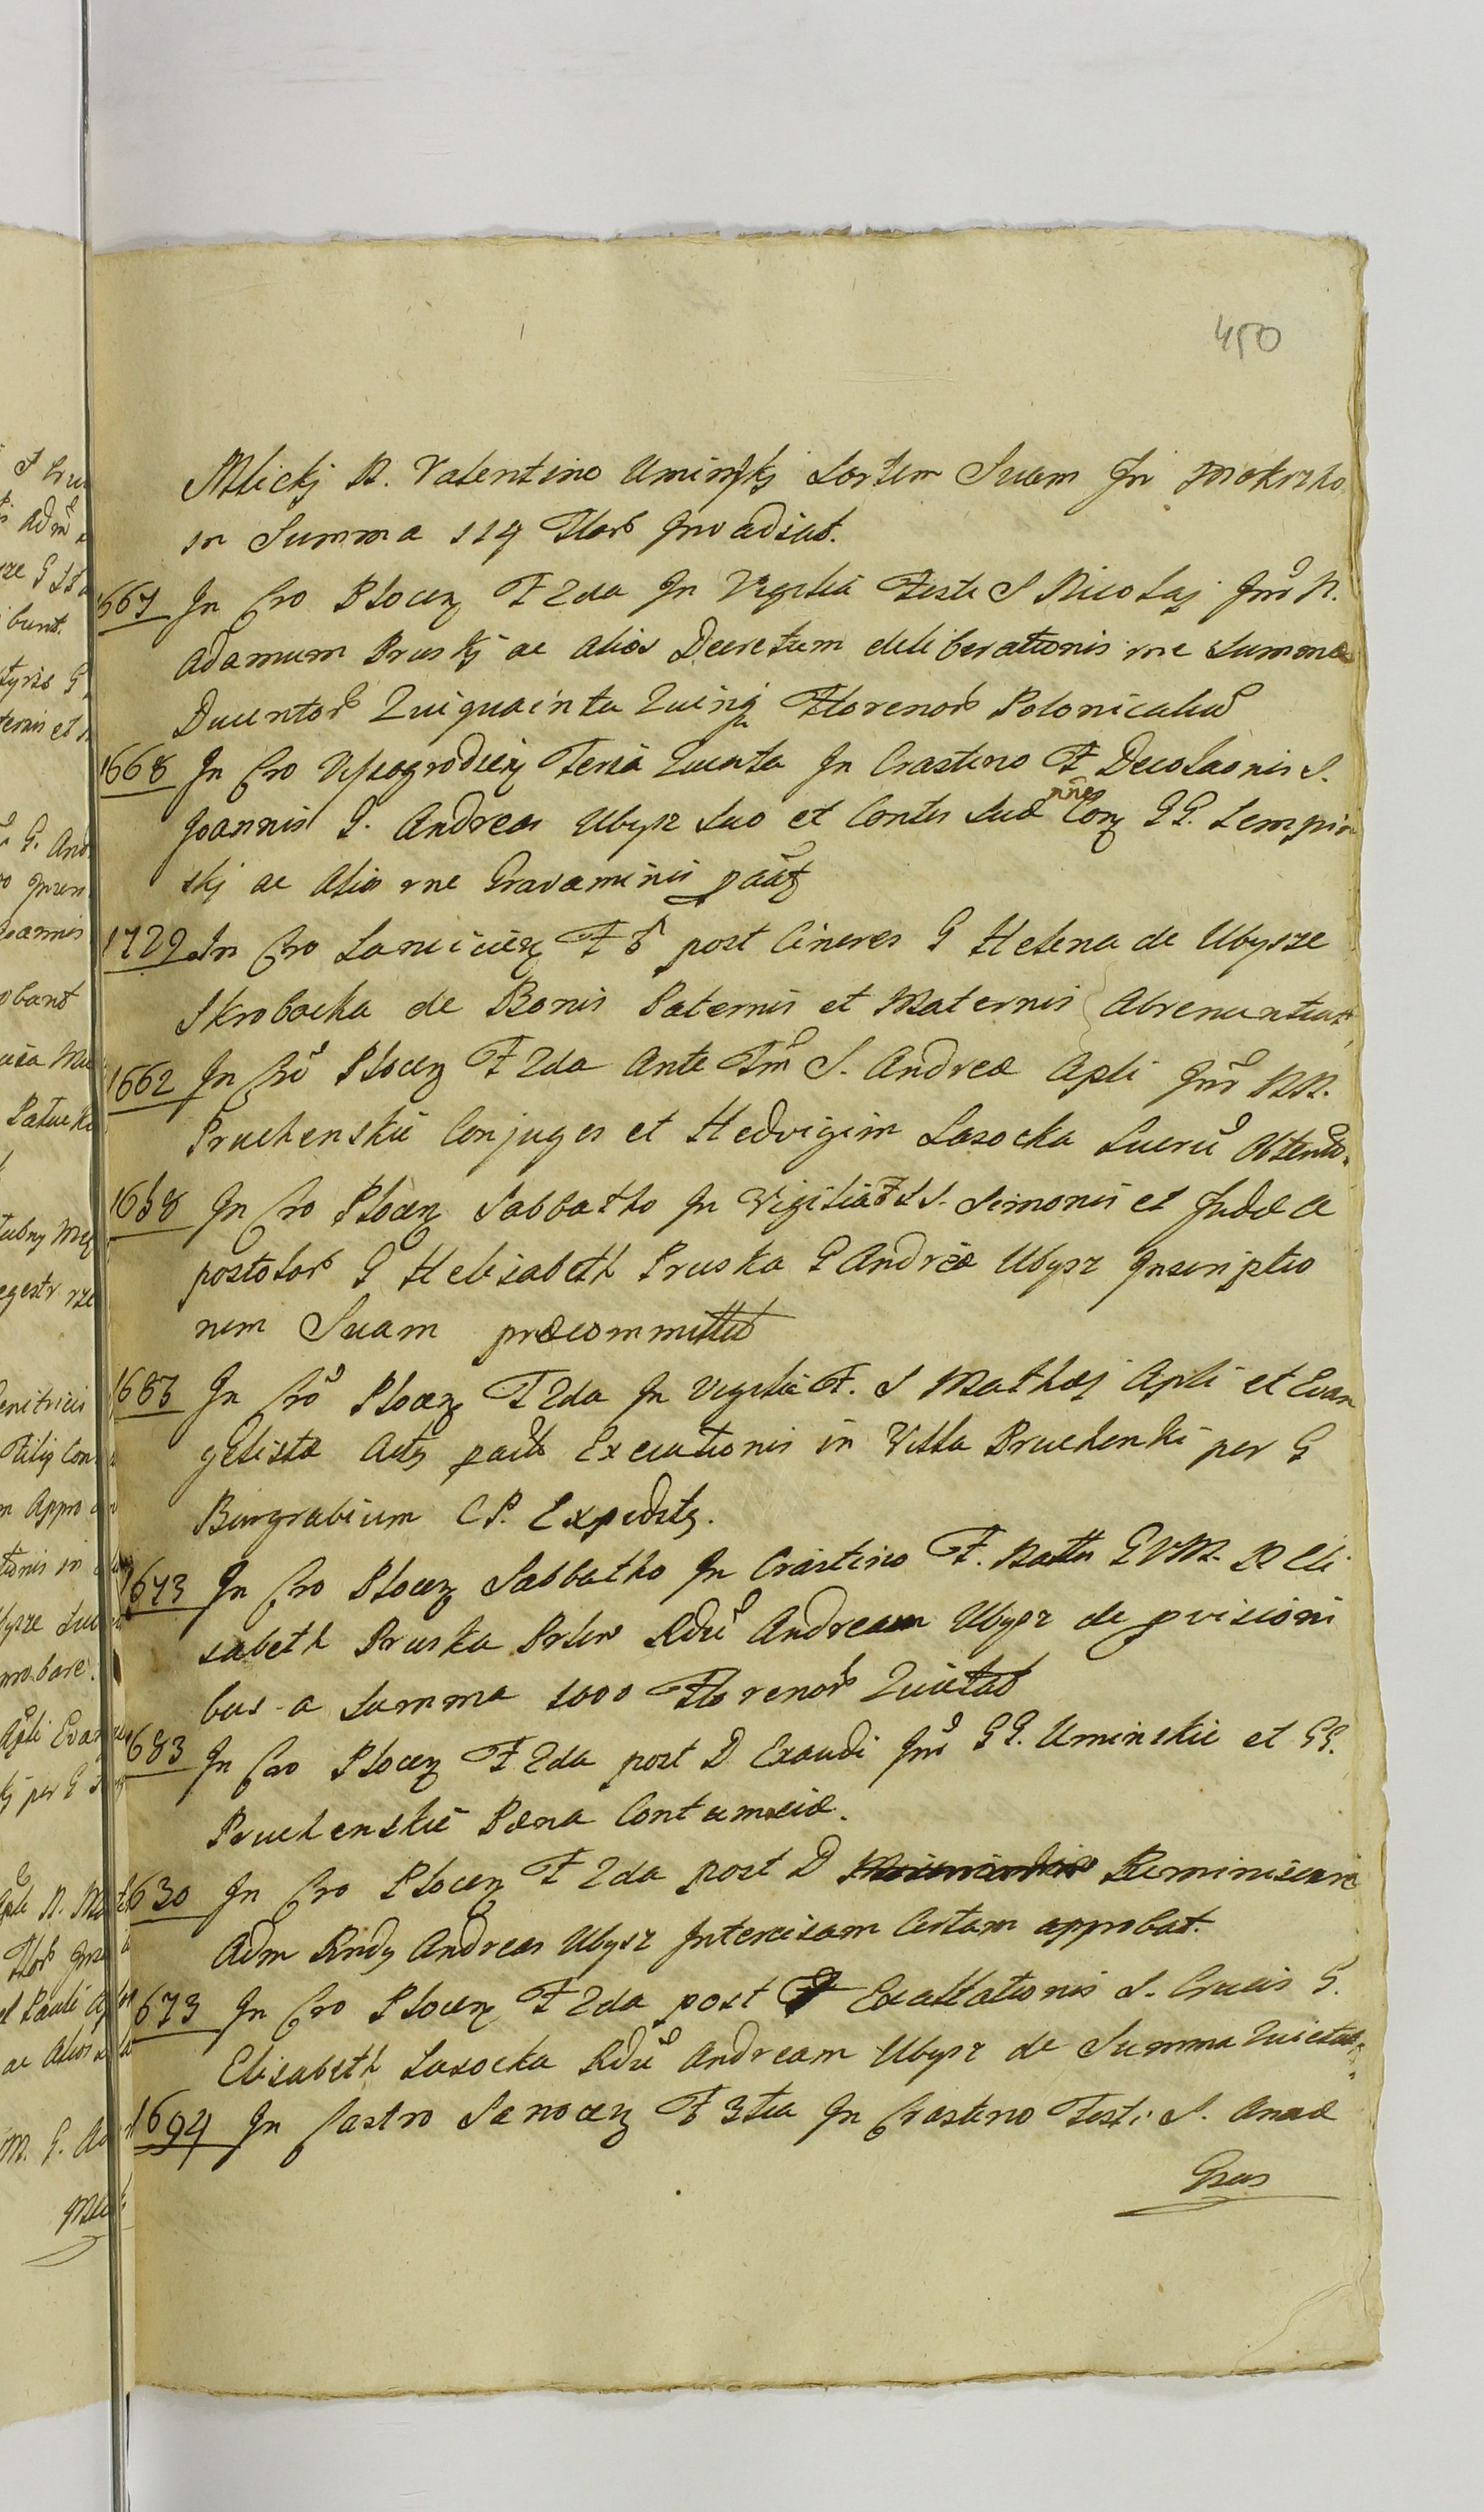 450
Mlickj N. Valentino Uminskj Sortem Suam In Mokrzko
in Summa 114 Flor Invadiat.
1667 In Cro Plocen F 2da In Vigilia Festi S Nicolaj Inr N.
Adamum Pruskj ac Alios Decretum deliberationis rne Summæ
Ducentor Quiquainta Quinq Florenor Polonicaliu
1668 In Cro Vyszogrodien Feria Quinta In Crastino F Decolaonis S.
Joannis G. Andreas Ubysz Suo et Contis Suæ nne Con GG. Lempin
skj ac Alios rne Gravaminis
1729 In Cro Lancicien F 6 post Cineres G Helena de Ubysze
Skrobacka de Bonis Paternis et Maternis Abrenuntiat
1662 In Cro Plocen F 2da Ante Fm S. Andreæ Apli Inr NN.
Pruchenskie Conjuges et Hedvigim Lasocka Lucru Obtentu.
1658 In Cro Plocen Sabbatho In Vigilia F SS. Simonis et Judæ A
postolor G Helisabeth Pruska G Andreæ Ubysz Inscriptio
nem Suam præcommittit
1683 In Cro Plocen F 2da In Vigilia F. S Mathæj Apli et Evan
gelistæ Actus Executionis in Villa Pruchenki per G
Burgrabium C P. Expedits.
1673 In Cro Plocen Sabbatho In Crastino F. Nattis GVM. N Eli
sabeth Pruska Rdu Andream Ubysz de pvisioni
bus a Summa 1000 Florenor Quietat
1683 In Cro Plocen F 2da post D Exaudi Inr GG. Uminskie et GG.
Pruchenskie Pæna Contumaciæ.
1630 In Cro Plocen F 2da post D Reminiscere
Adm Rndus Andreas Ubysz Intercisam Certam approbat.
1673 In Cro Plocen F 2da post F Exaltationis S. Crucis G.
Elisabeth Lasocka Rdu Andream Ubysz de Summa Quietat
1694 In Castro Sanocen F 3tia In Crastino Festi S. Annæ
Gsus